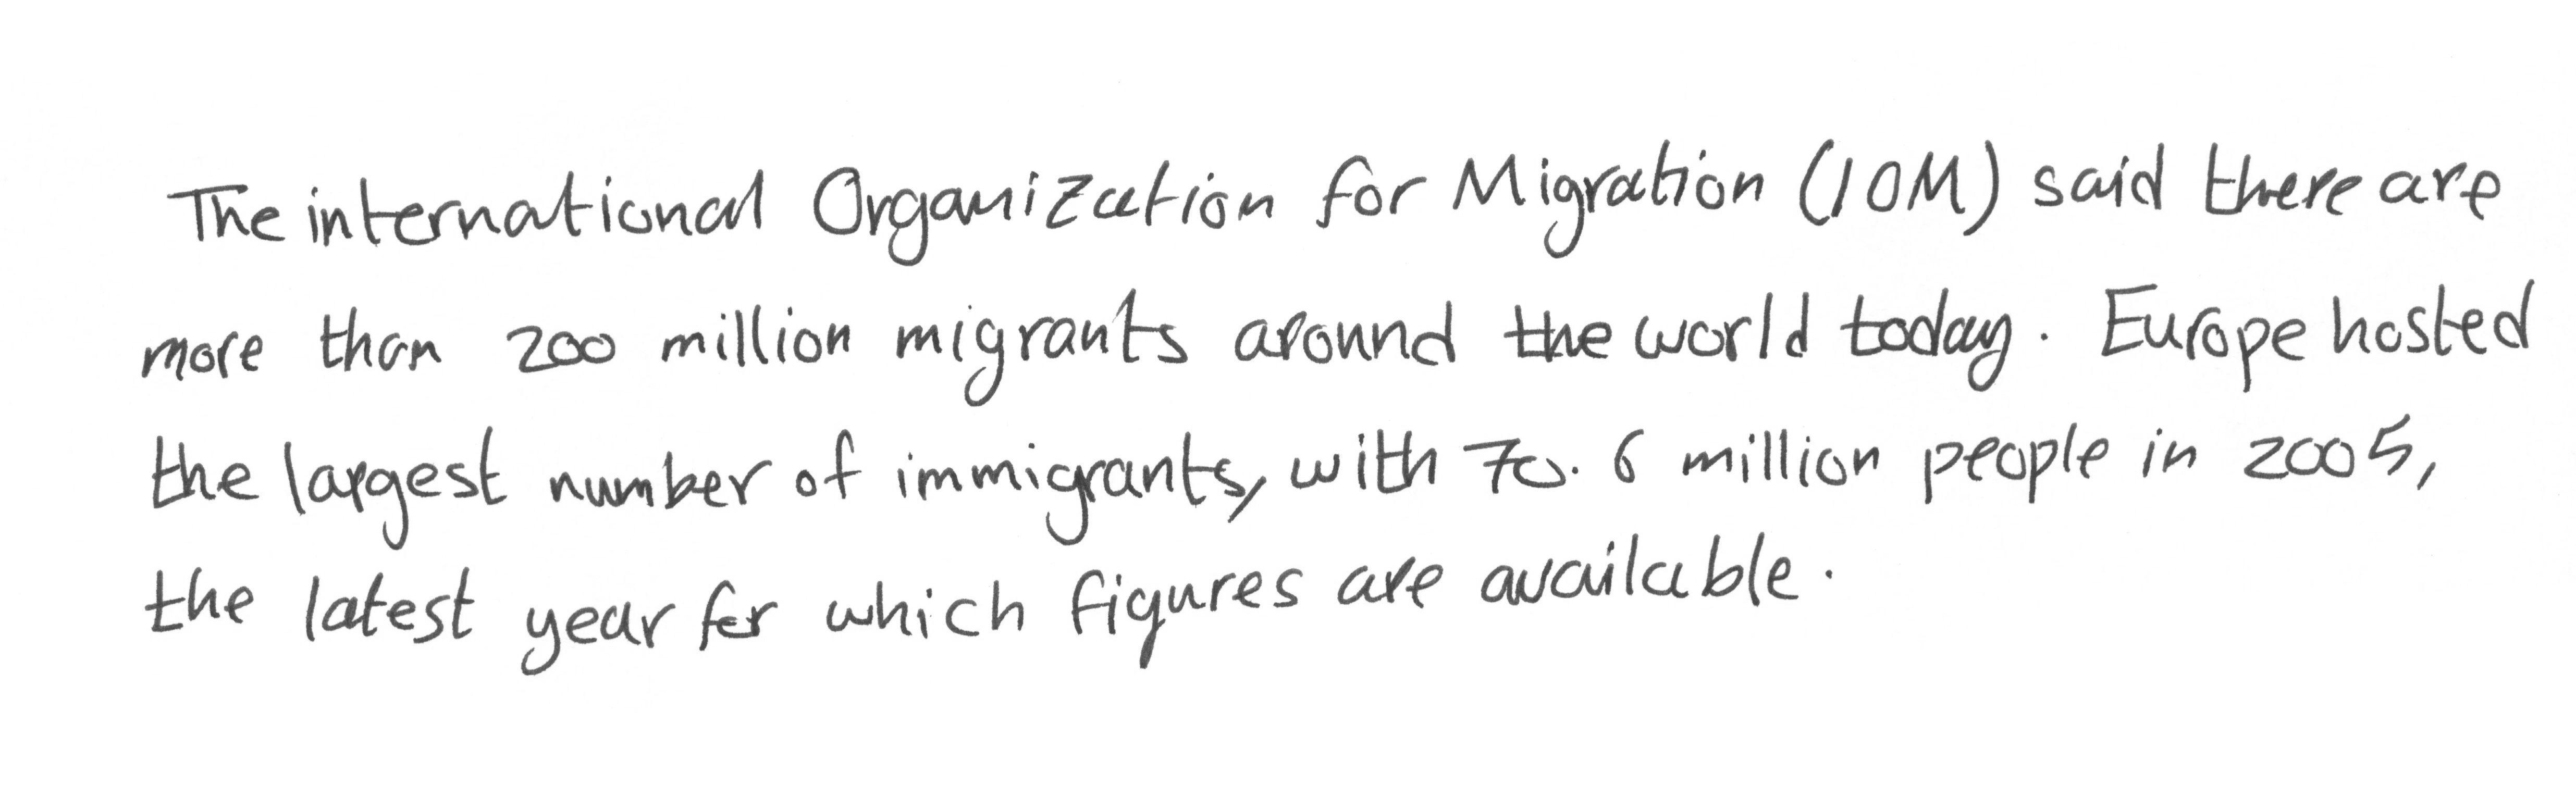 The international Organization for Migration (IOM) said there are
more than 200 million migrants around the world today. Europe hosted
the largest number of immigrants, with 70.6 million people in 2005,
the latest year for which figures are available.